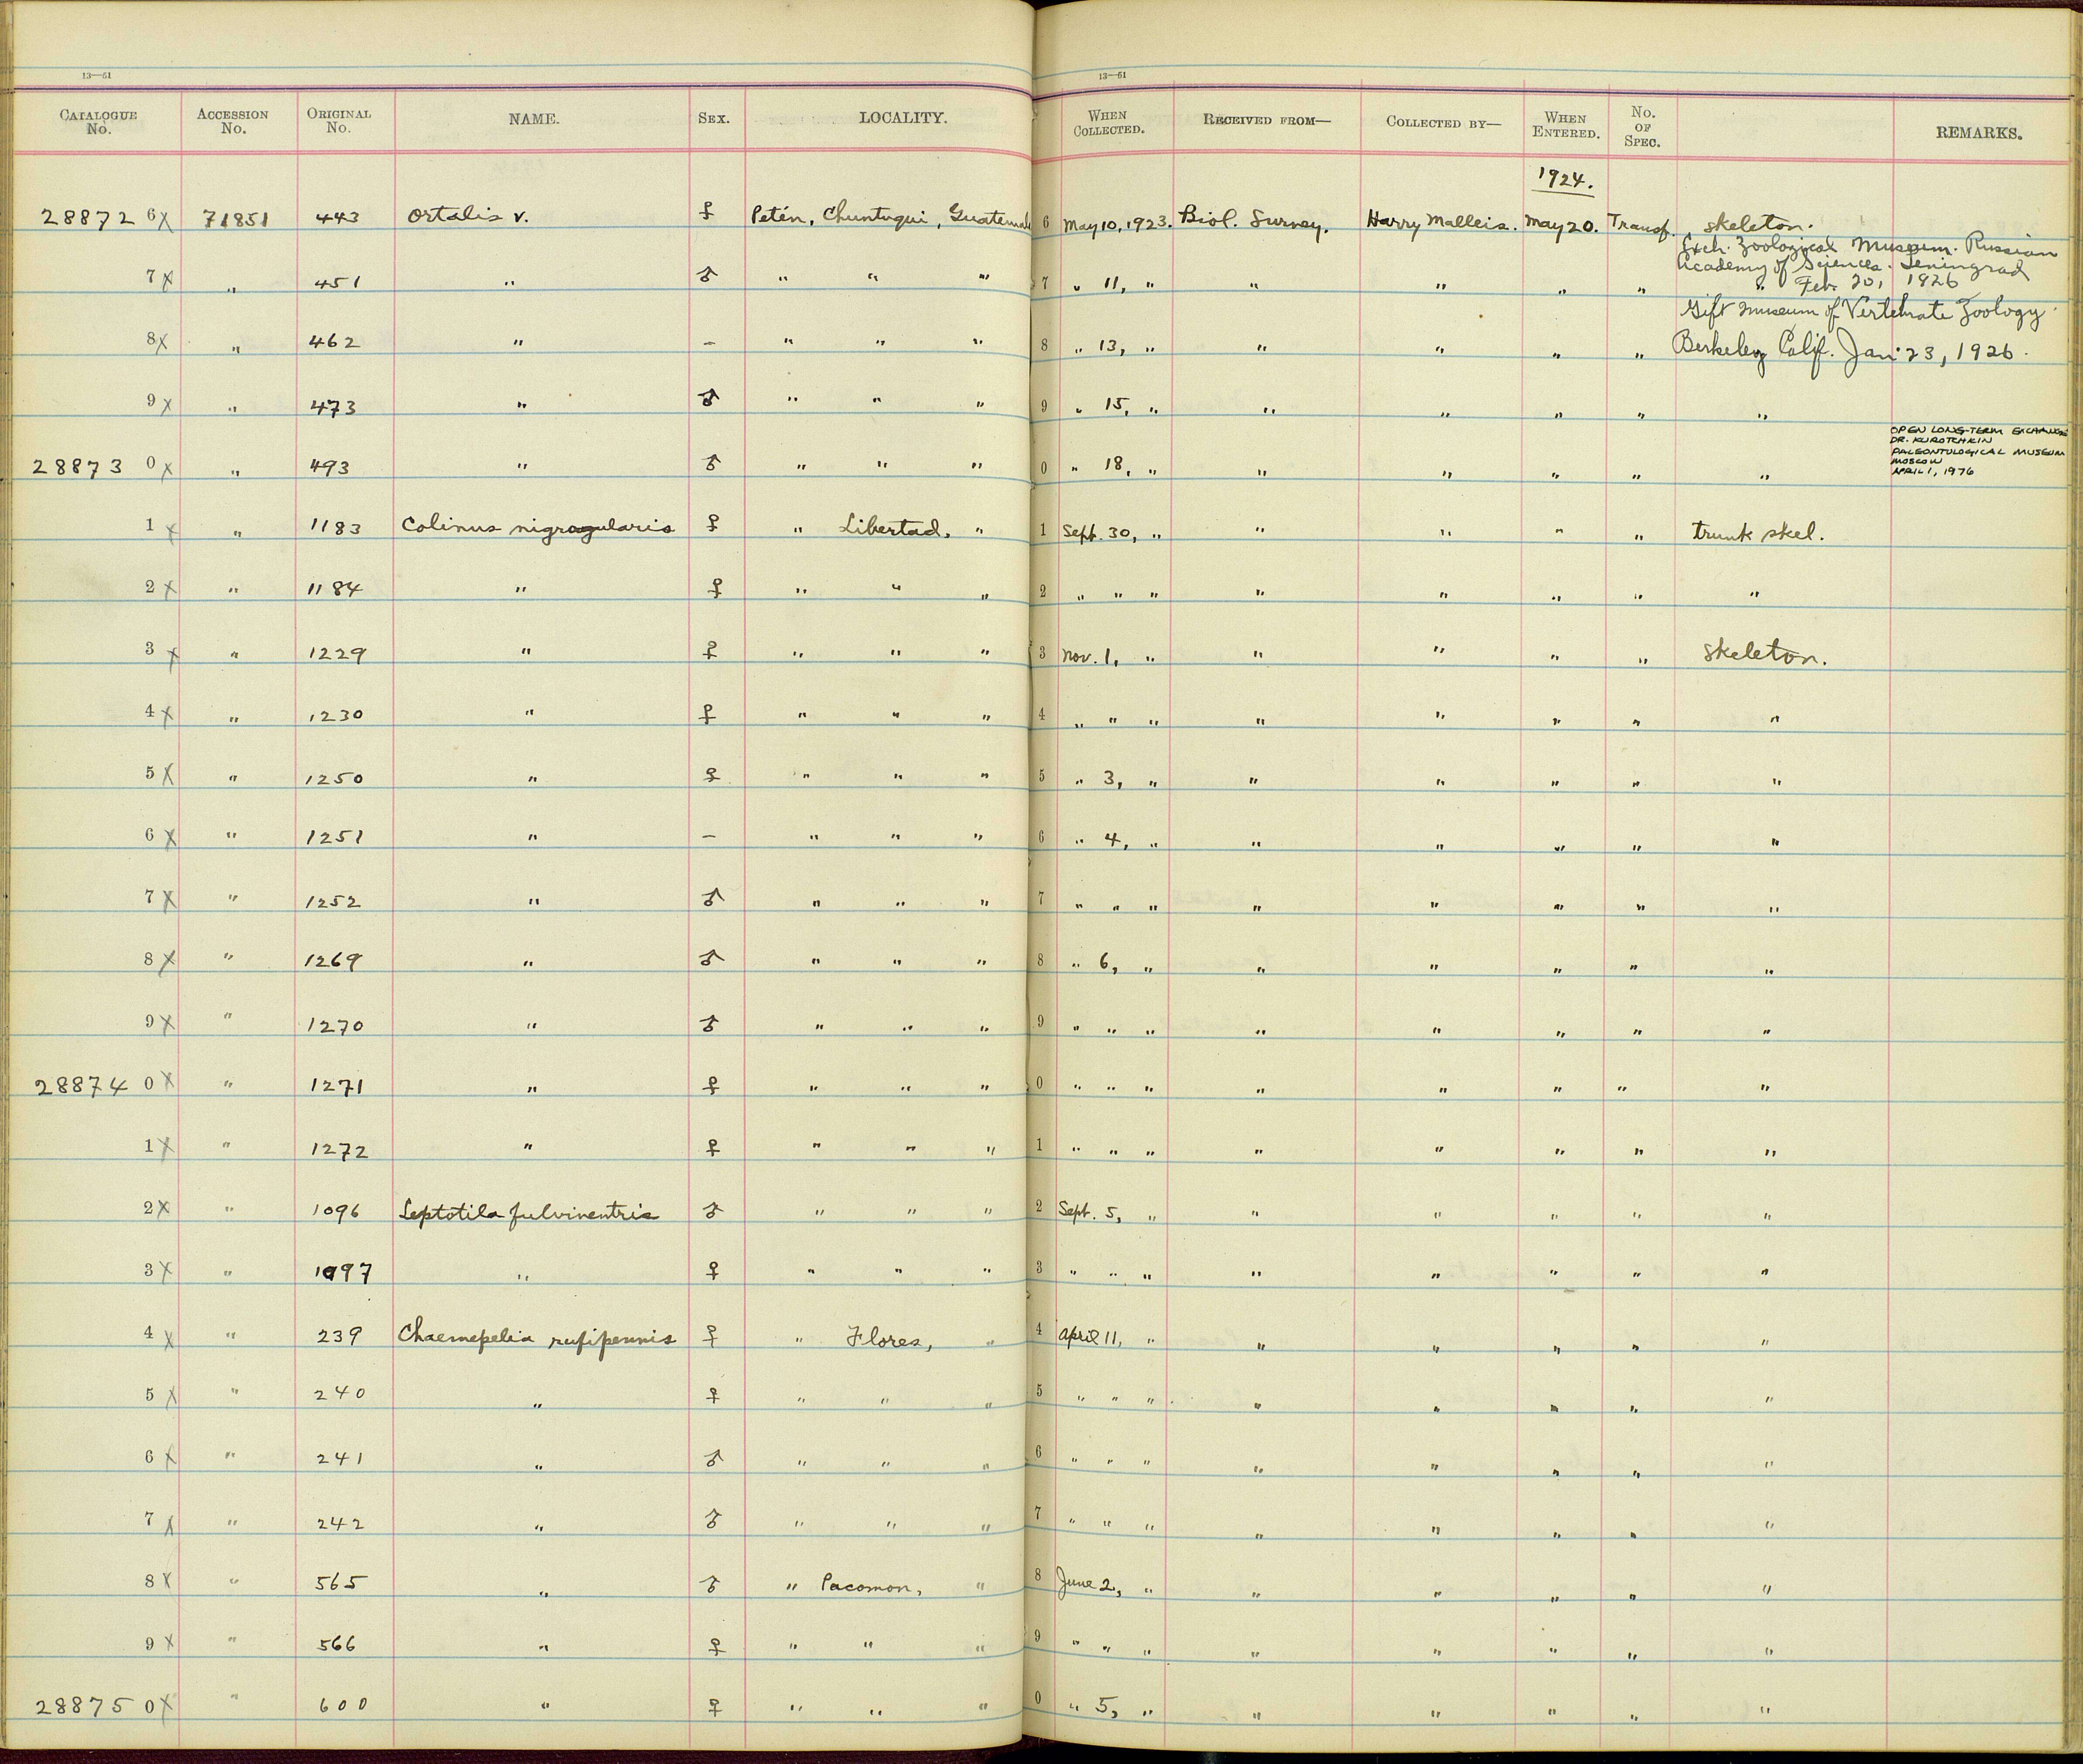 13—51 13—51
CATALOGUE No. ACCESSION No. ORIGINAL No. NAME. SEX. LOCALITY. WHEN COLLECTED. RECEIVED FROM— COLLECTED BY— WHEN ENTERED. No. OF SPEC. REMARKS.
1924.
28872 6x 71851 443 Ortalis v. ♀ Petén, Chuntuqui, Guatemala 6 May 10, 1923. Biol. Survey. Harry Malleis. May 20. Transf. skeleton.
Exch. Zoological Museum. Russian
Academy of Sciences. Leningrad
7x " 451 " ♂ " " " 7 " 11, " " " " " " Feb. 20, 1926
Gift Museum of Vertebrate Zoology
8x " 462 " – " " " 8 " 13, " " " " " Berkeley Calif. Jan. 23, 1926.
9x " 473 " ♂ " " " 9 " 15, " " " " " "
OPEN LONG-TERM EXCHANGE
DR. KUROTCHKIN
PALEONTOLOGICAL MUSEUM
MOSCOW
APRIL 1, 1976
28873 0x " 493 " ♂ " " " 0 " 18, " " " " " "
1x " 1183 Colinus nigrogularis ♀ " Libertad, " 1 Sept. 30, " " " " " trunk skel.
2x " 1184 " ♀ " " " 2 " " " " " " " "
3x " 1229 " ♀ " " " 3 Nov. 1, " " " " " skeleton.
4x " 1230 " ♀ " " " 4 " " " " " " " "
5x " 1250 " ♀ " " " 5 " 3, " " " " " "
6x " 1251 " – " " " 6 " 4, " " " " " "
7x " 1252 " ♂ " " " 7 " " " " " " " "
8x " 1269 " ♂ " " " 8 " 6, " " " " " "
9x " 1270 " ♂ " " " 9 " " " " " " " "
28874 0x " 1271 " ♀ " " " 0 " " " " " " " "
1x " 1272 " ♀ " " " 1 " " " " " " " "
2x " 1096 Leptotila fulviventris ♂ " " " 2 Sept. 5, " " " " " "
3x " 1097 " ♀ " " " 3 " " " " " " " "
4x " 239 Chaemepelia rufipennis ♀ " Flores, " 4 April 11, " " " " " "
5x " 240 " ♀ " " " 5 " " " " " " " "
6x " 241 " ♂ " " " 6 " " " " " " " "
7x " 242 " ♂ " " " 7 " " " " " " " "
8x " 565 " ♂ " Pacomon, " 8 June 2, " " " " " "
9x " 566 " ♀ " " " 9 " " " " " " " "
28875 0x " 600 " ♀ " " " 0 " 5, " " " " " "